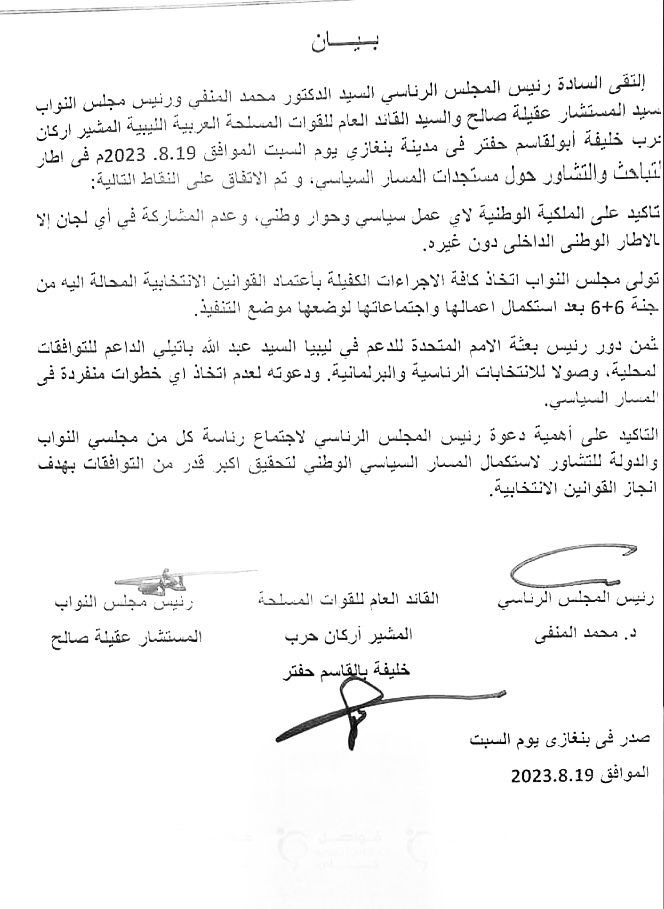 بيـــــان
إلتقى السادة رئيس المجلس الرئاسي السيد الدكتور محمد المنفي ورئيس مجلس النواب
سيد المستشار عقيلة صالح والسيد القائد العام للقوات المسلحة العربية الليبية المشير اركان
رب خليفة أبولقاسم حفتر فى مدينة بنغازي يوم السبت الموافق 2023.8.19م فى اطار
لتباحث والتشاور حول مستجدات المسار السياسي، و تم الاتفاق على النقاط التالية:
تاكيد على الملكية الوطنية لاي عمل سياسي وحوار وطني، وعدم المشاركة في أي لجان إلا
الاطار الوطنى الداخلى دون غيره.
تولى مجلس النواب اتخاذ كافة الاجراءات الكفيلة بأعتماد القوانين الانتخابية المحالة اليه من
جنة 6+6 بعد استكمال اعمالها واجتماعاتها لوضعها موضع التنفيذ.
ثمن دور رئيس بعثة الامم المتحدة للدعم في ليبيا السيد عبد الله باتيلي الداعم للتوافقات
لمحلية، وصولا للانتخابات الرئاسية والبرلمانية. ودعوته لعدم اتخاذ اي خطوات منفردة فى
المسار السياسي.
التاكيد على أهمية دعوة رئيس المجلس الرئاسي لاجتماع رئاسة كل من مجلسي النواب
والدولة للتشاور لاستكمال المسار السياسي الوطني لتحقيق اكبر قدر من التوافقات بهدف
انجاز القوانين الانتخابية.
رئيس المجلس الرئاسي القائد العام للقوات المسلحة رئيس مجلس النواب
د. محمد المنفى المشير أركان حرب المستشار عقيلة صالح
خليفة بالقاسم حفتر
صدر فى بنغازى يوم السبت
الموافق 2023.8.19